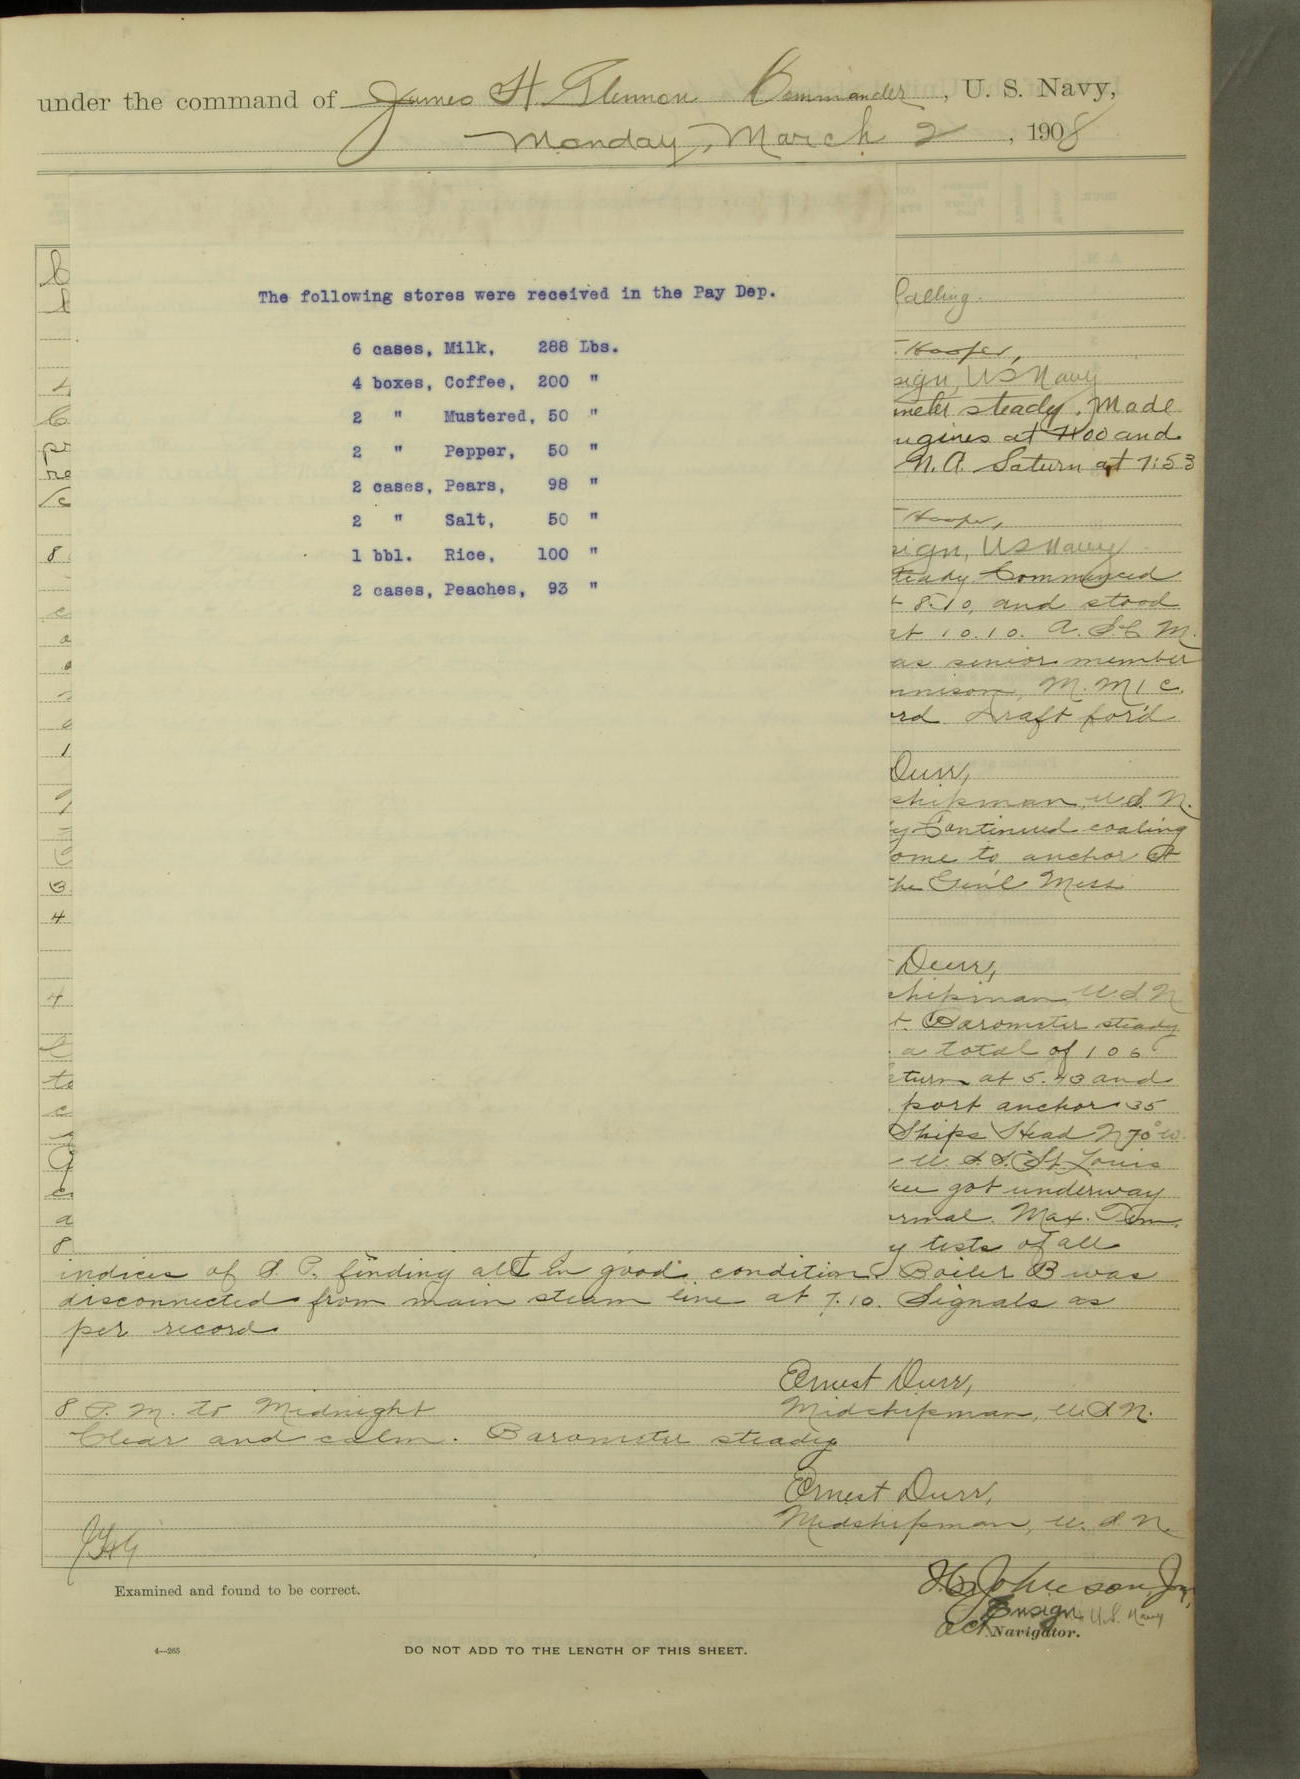 under the command of James H. Glennon Commander, U. S. Navy,
Monday, March 2, 1908
falling.
The following stores were received in the Pay Dep.
Hooper,
6 cases, Milk, 288 Lbs.
sign, US Navy
4 boxes, Coffee, 200 "
meter steady. Made
2 " Mustered, 50 "
ugines at 4:00 and
2 " Pepper, 50 "
N. A. Saturn at 7:53
2 cases, Pears, 98 "
2 " Salt, 50 "
Hooper,
1 bbl. Rice, 100 "
sign, US Navy
2 cases, Peaches, 93 "
teady Commenced
t 8.10, and stood
at 10.10. A.
as senior member
nnison, M. M 1 c.
rd. Draft for'd
Durr,
shipman, U.S.N.
y Continued coaling
ome to anchor at
the Gen'l Mess
Durr,
shipman, U.S.N
t. Barometer steady
a total of 106
turn at 5.43 and
port anchor 35
Ships Head N 70° W.
U.S.S. St Louis
kee got underway
rmal. Max. Tem.
y tests of all
indices of S. P. finding all in good condition. Boiler B was
disconnected from main steam line at 7.10. Signals as
per record
Ernest Durr,
Midshipman, U.S.N.
8 P. M. to Midnight
Clear and calm. Barometer steady
Ernest Durr,
Midshipman, U.S.N.
JHG
Examined and found to be correct.
Johnson, Jr,
Ensign U.S. Navy
act. Navigator.
4—265
DO NOT ADD TO THE LENGTH OF THIS SHEET.